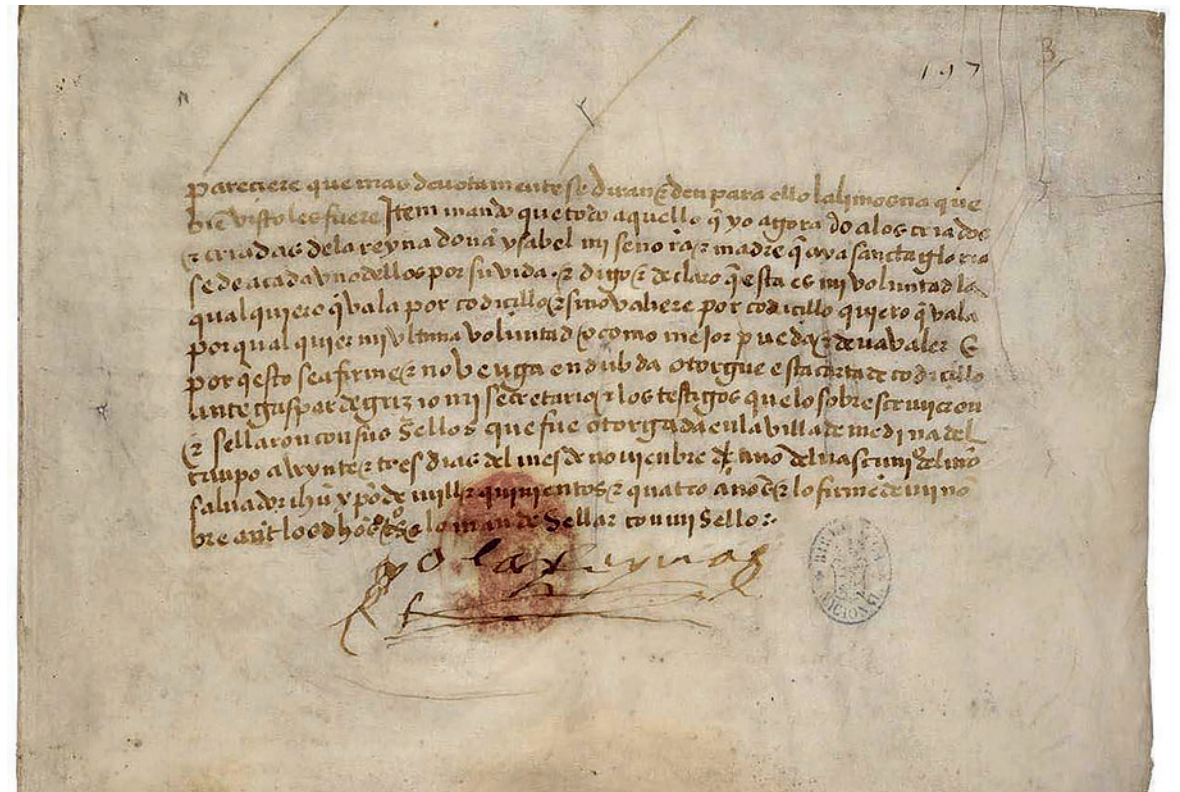 197
pareciere que mas devotamente se diran ⁊ den para ello la limosna que
biẽ visto les fuere Item mando que todo aquello q̃ yo agora do a los criados
⁊ criadas de la reyna dona ysabel mi señora ⁊ madre q̃ aya sancta gloria
se de a cada uno dellos por su vida. ⁊ digo ⁊ declaro q̃ esta es mi voluntad la
qual quiero q̃ vala por codicillo ⁊ si no valiere por codicillo quiero q̃ vala
por qual quier mi ultima voluntad o como mejor pueda ⁊ deva valer E
por q̃ esto sea firme ⁊ no venga en dubda otorgue esta carta de codicillo
ante gaspar de grizio mi secretario ⁊ los testigos que lo sobrescrivieron
⁊ sellaron con sus sellos que fue otorgada en la villa de medina del
campo a veynte ⁊ tres dias del mes de noviembre del año del nascimiº del nr̃o
salvador ihũ xp̃o de mill ⁊ quinientos ⁊ quatro años ⁊ lo firme de mi nõ
bre ante los dhõs tºs ⁊ lo mande sellar con mi sello:
yo la Reyna
BIBLIOTECA NACIONAL